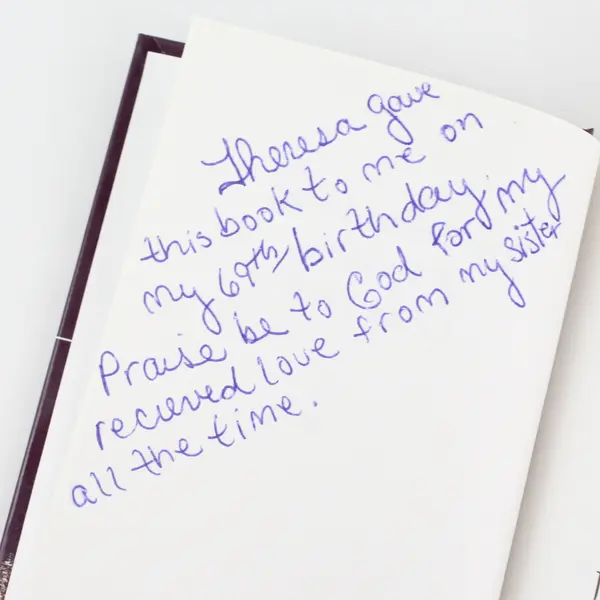 Theresa gave
this book to me on
my 69th birthday.
Praise be to God for my
recieved love from my sister
all the time.